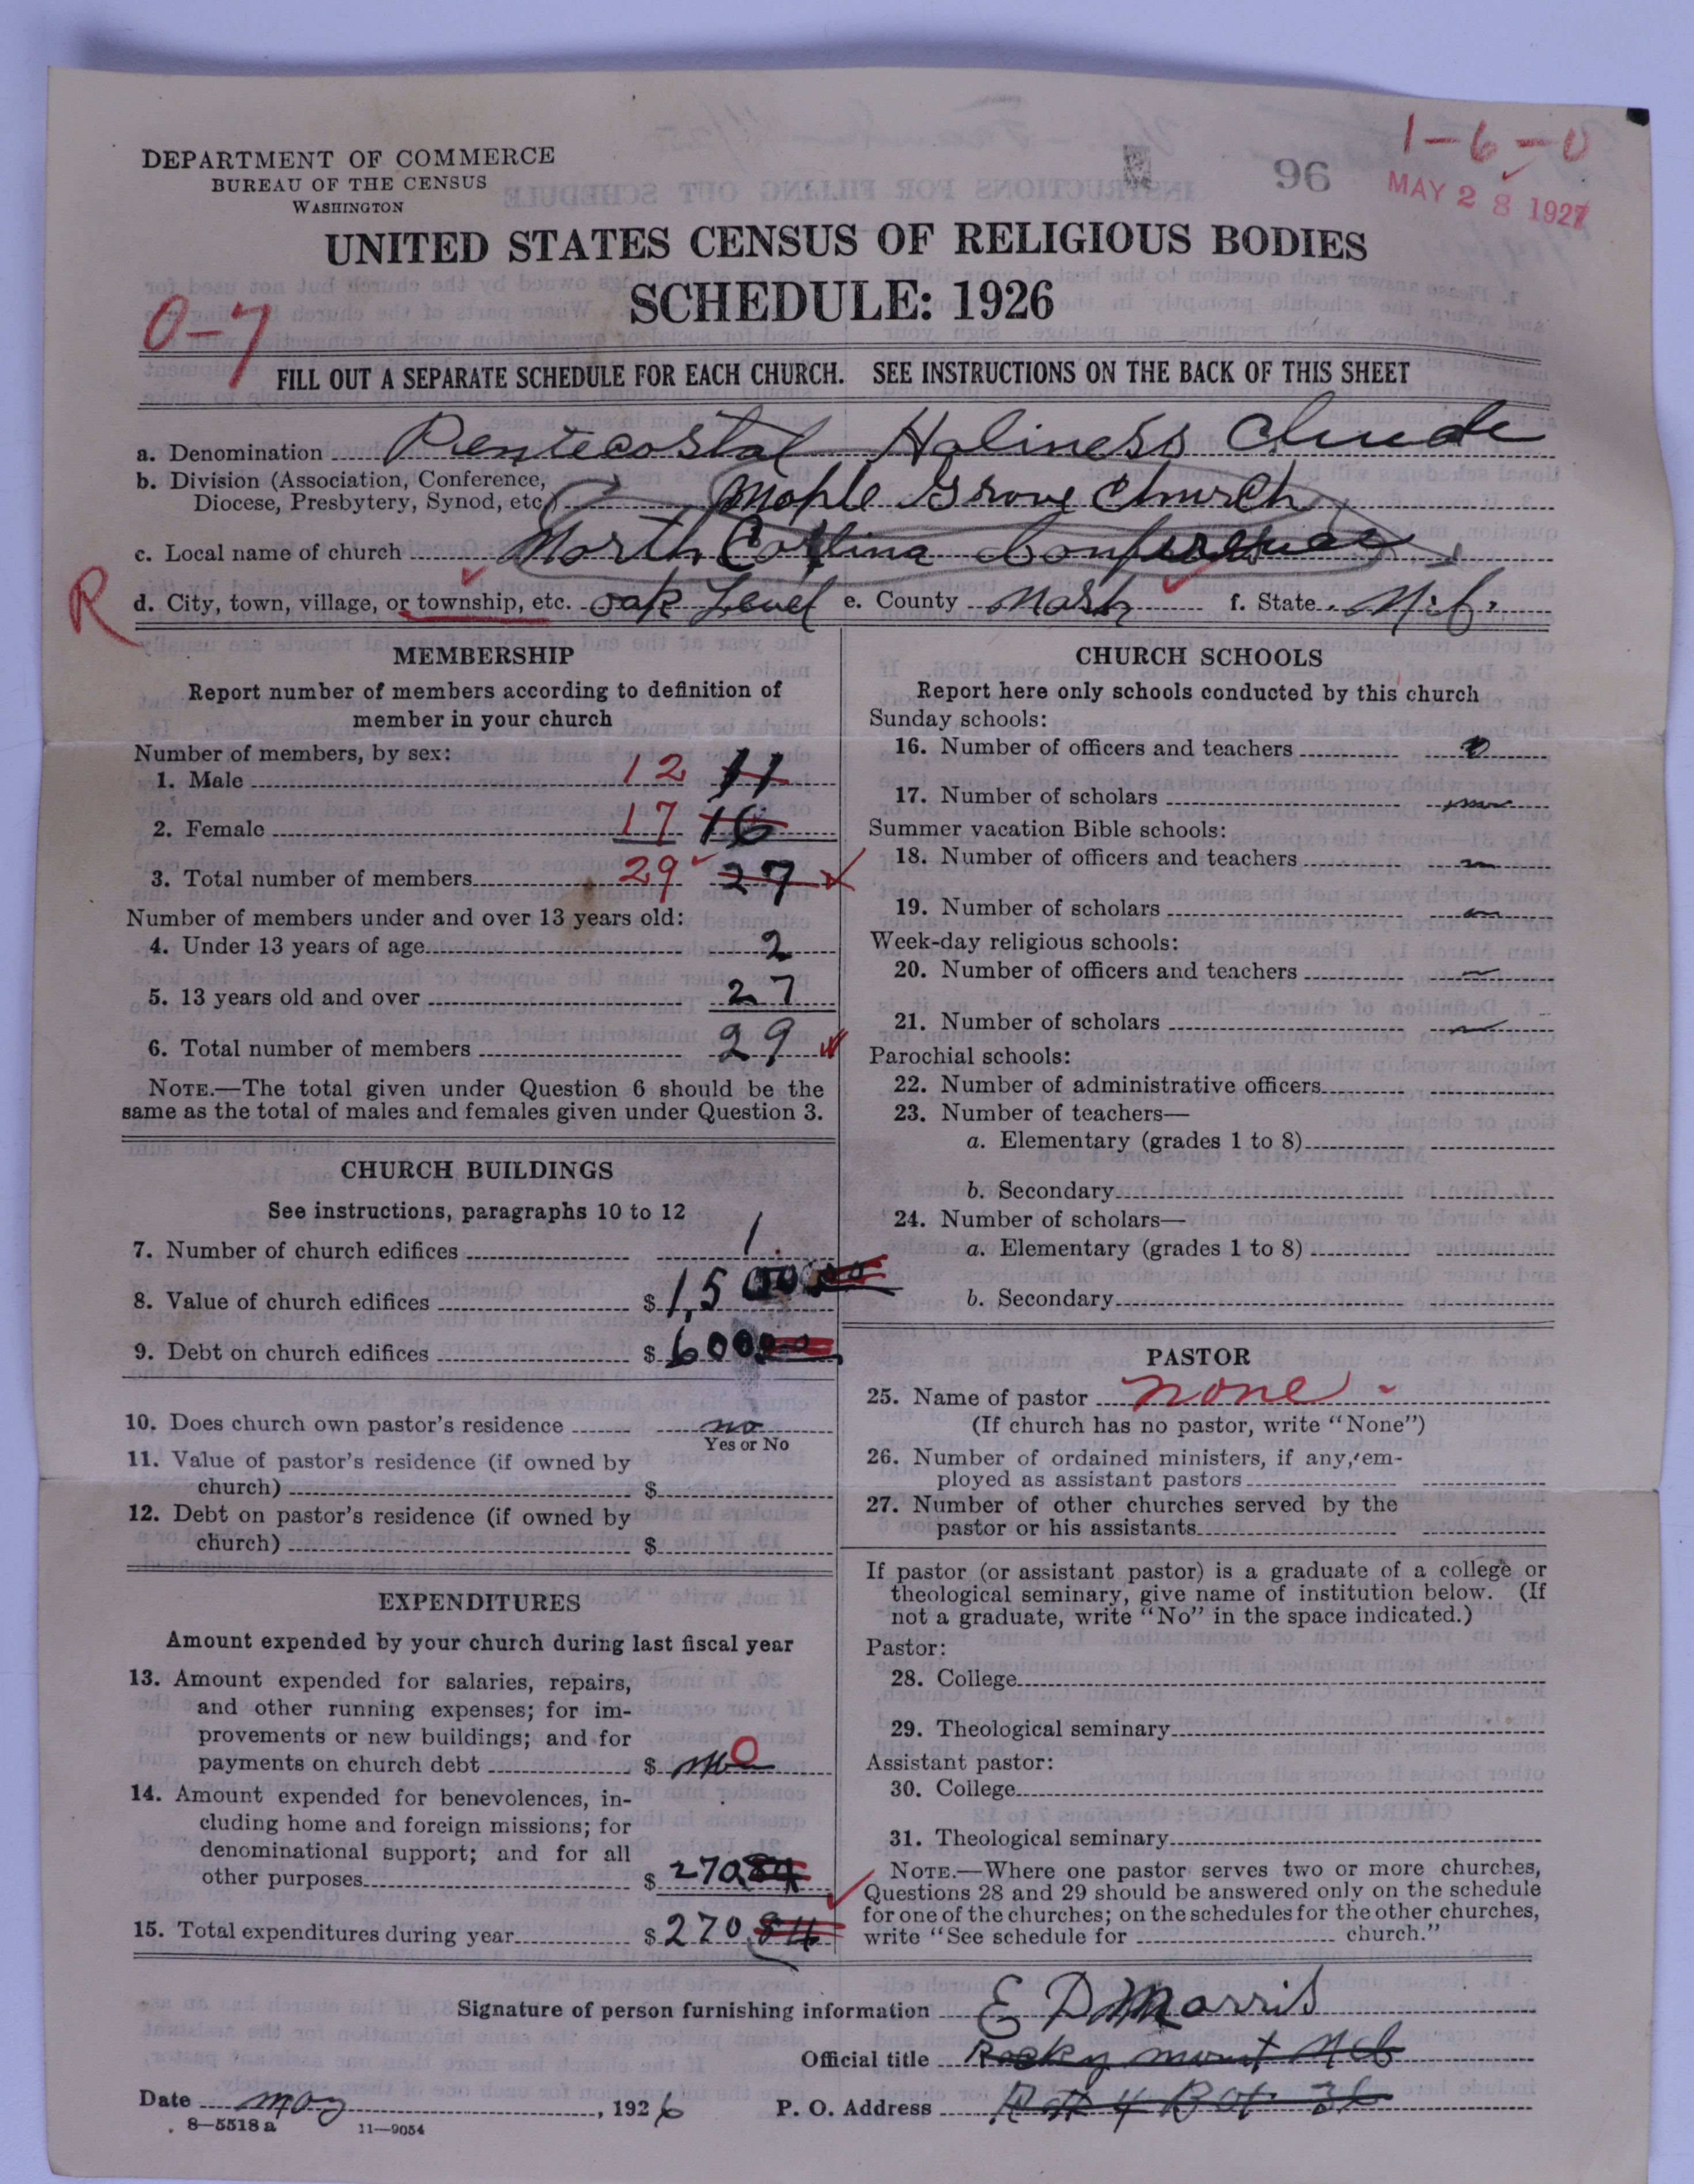 DEPARTMENT OF COMMERCE
BUREAU OF THE CENSUS
WASHINGTON
96
1-6-0
MAY 28 1927
UNITED STATES CENSUS OF RELIGIOUS BODIES
SCHEDULE: 1926
0-7
FILL OUT A SEPARATE SCHEDULE FOR EACH CHURCH. SEE INSTRUCTIONS ON THE BACK OF THIS SHEET
a. Denomination Pentecostal Holiness
b. Division (Association, Conference,
Diocese, Presbytery, Synod, etc.) Maple Grove Church
c. Local name of church North Carolina Conference
R
d. City, town, village, or township, etc. Oak Level e. County Nash f. State N.C.
MEMBERSHIP
Report number of members according to definition of
member in your church
Number of members, by sex:
1. Male 12 11
2. Female 17 16
3. Total number of members 29 27
Number of members under and over 13 years old:
4. Under 13 years of age 2
5. 13 years old and over 27
6. Total number of members 29
NOTE.—The total given under Question 6 should be the
same as the total of males and females given under Question 3.
CHURCH BUILDINGS
See instructions, paragraphs 10 to 12
7. Number of church edifices 1
8. Value of church edifices $ 1,500
9. Debt on church edifices $ 600
10. Does church own pastor's residence no
Yes or No
11. Value of pastor's residence (if owned by
church) $
12. Debt on pastor's residence (if owned by
church) $
EXPENDITURES
Amount expended by your church during last fiscal year
13. Amount expended for salaries, repairs,
and other running expenses; for im-
provements or new buildings; and for
payments on church debt $ 0
14. Amount expended for benevolences, in-
cluding home and foreign missions; for
denominational support; and for all
other purposes $ 270 84
15. Total expenditures during year $ 270 84
CHURCH SCHOOLS
Report here only schools conducted by this church
Sunday schools:
16. Number of officers and teachers
17. Number of scholars
Summer vacation Bible schools:
18. Number of officers and teachers
19. Number of scholars
Week-day religious schools:
20. Number of officers and teachers
21. Number of scholars
Parochial schools:
22. Number of administrative officers
23. Number of teachers—
a. Elementary (grades 1 to 8)
b. Secondary
24. Number of scholars—
a. Elementary (grades 1 to 8)
b. Secondary
PASTOR
25. Name of pastor none
(If church has no pastor, write "None")
26. Number of ordained ministers, if any, em-
ployed as assistant pastors
27. Number of other churches served by the
pastor or his assistants
If pastor (or assistant pastor) is a graduate of a college or
theological seminary, give name of institution below. (If
not a graduate, write "No" in the space indicated.)
Pastor:
28. College
29. Theological seminary
Assistant pastor:
30. College
31. Theological seminary
NOTE.—Where one pastor serves two or more churches,
Questions 28 and 29 should be answered only on the schedule
for one of the churches; on the schedules for the other churches,
write "See schedule for church."
Signature of person furnishing information E D Morris
Official title Rocky mount N C
Date may, 1926 P. O. Address
8—5518 a 11—9054